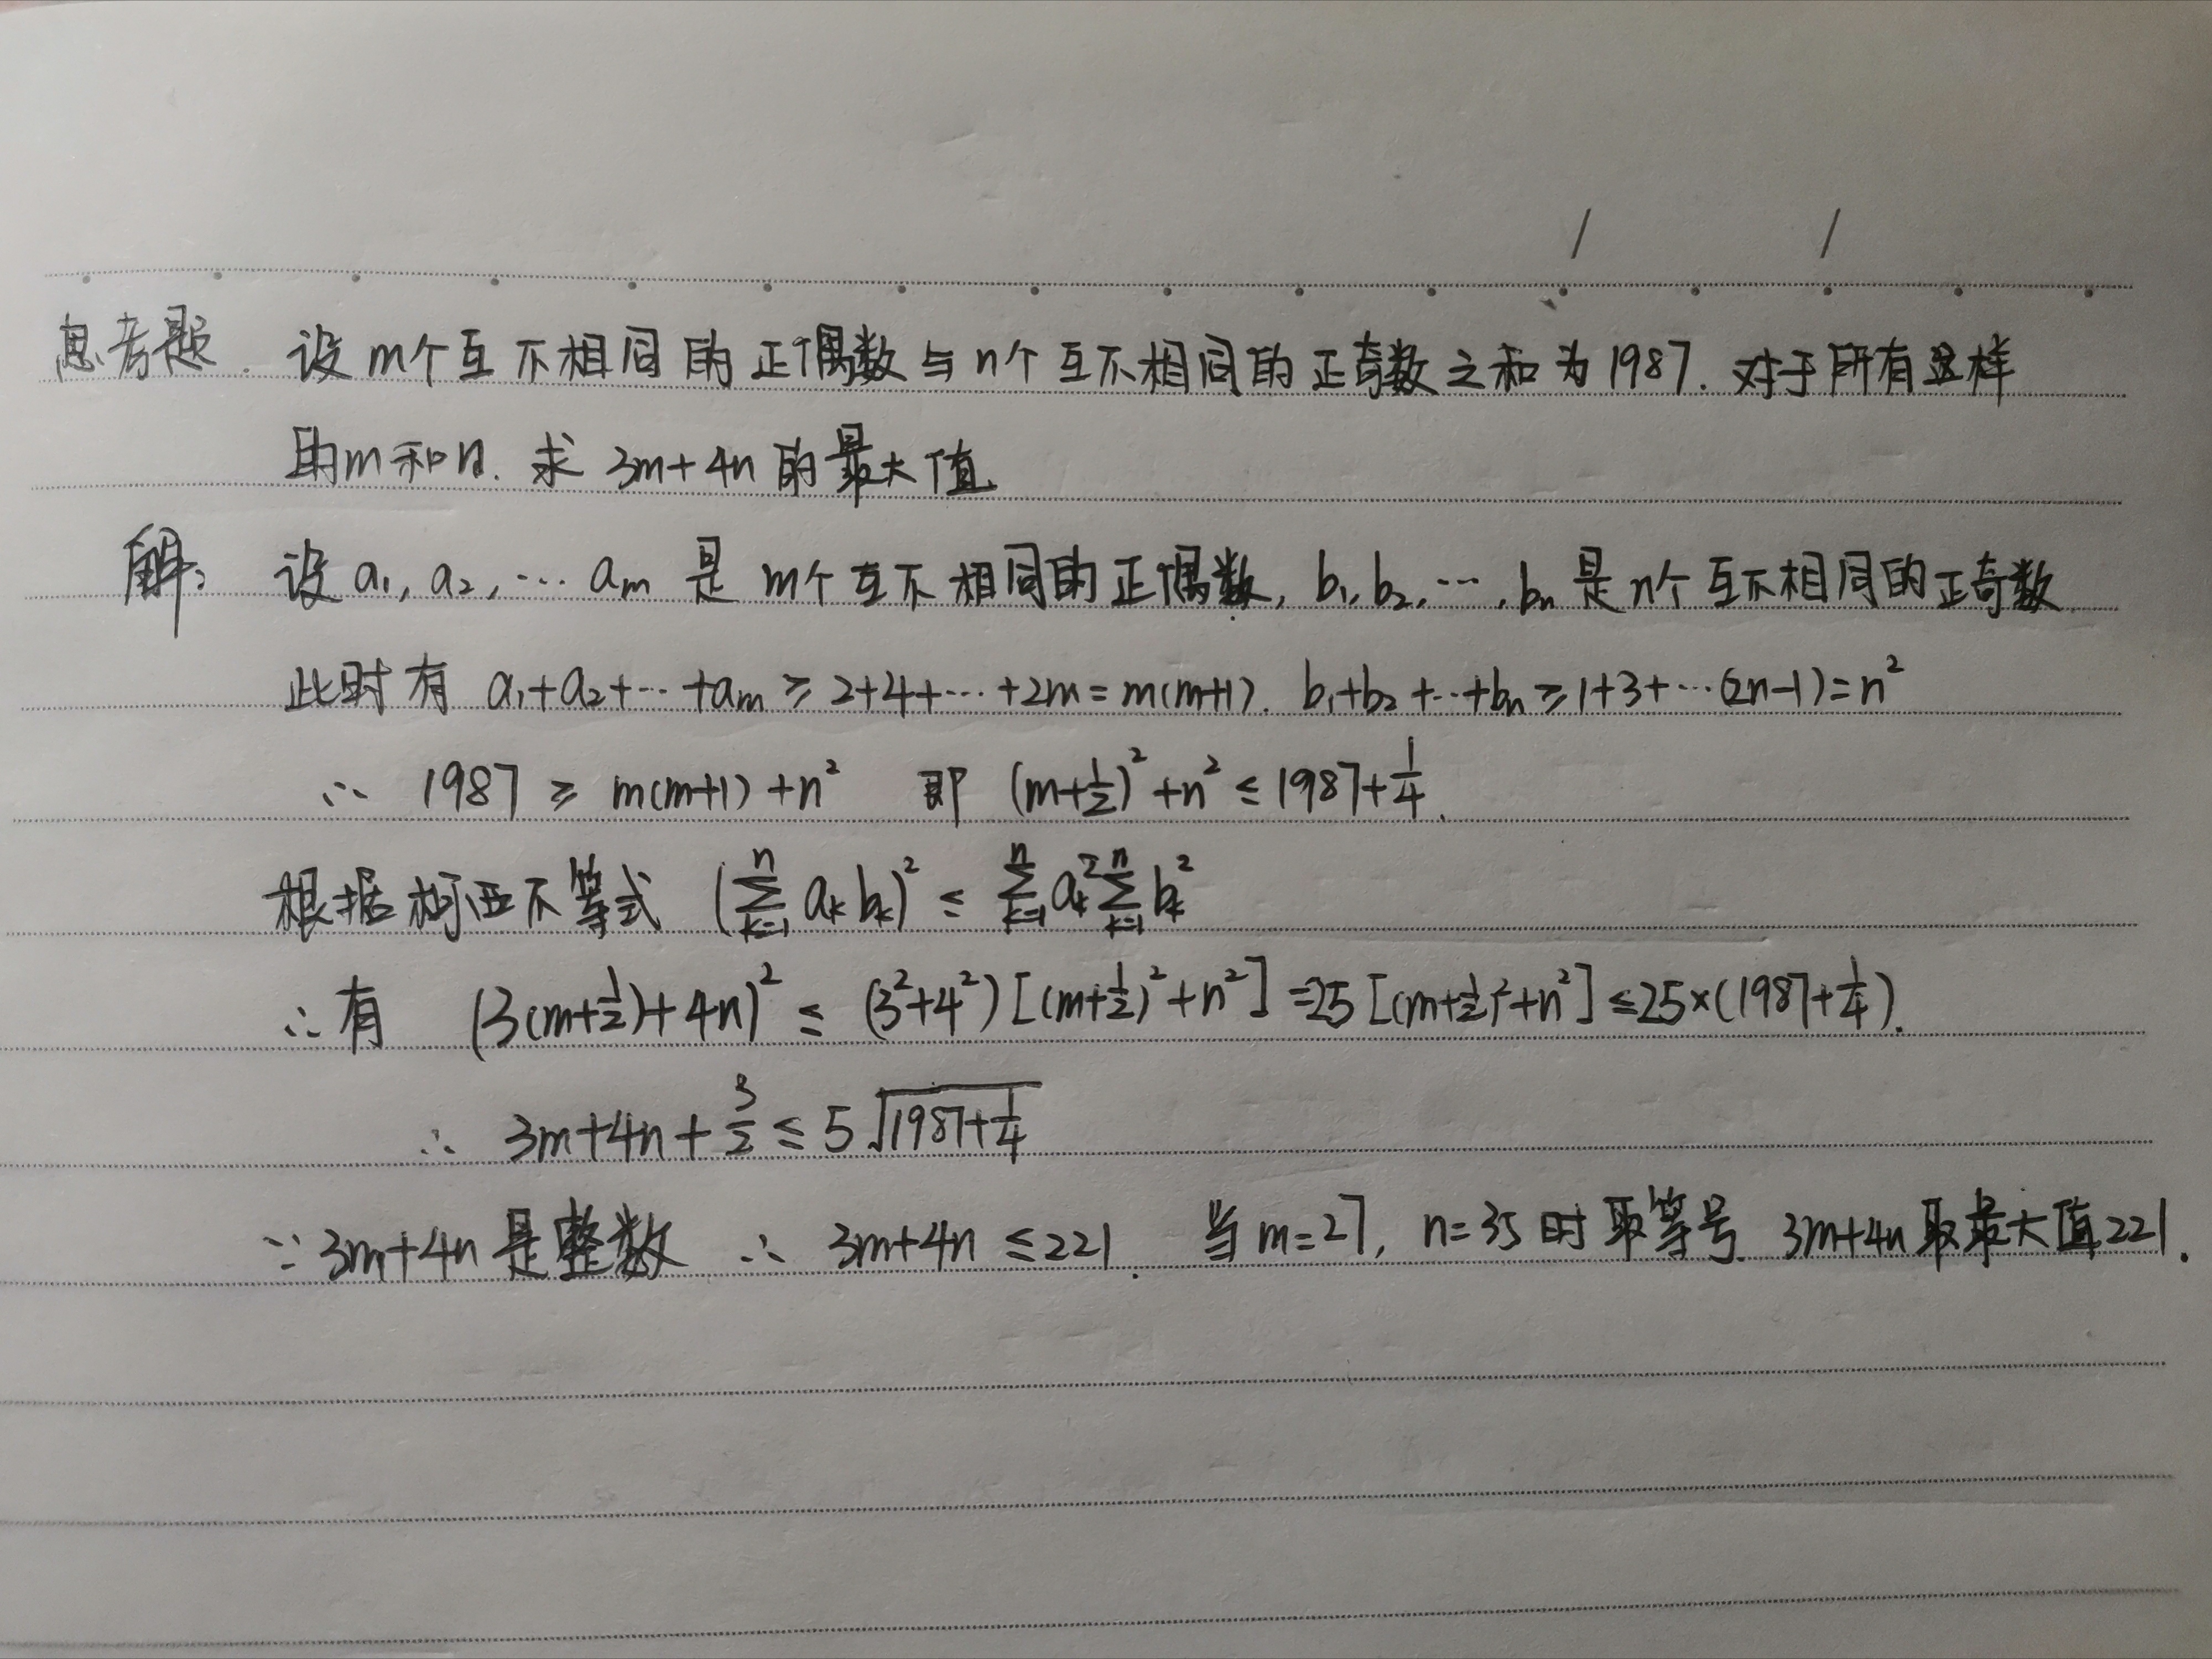 思考题. 设m个互不相同的正偶数与n个互不相同的正奇数之和为1987. 对于所有这样
的m和n. 求 3m+4n 的最大值
解: 设 a₁, a₂, … aₘ 是 m个互不相同的正偶数, b₁, b₂, …, bₙ 是 n个互不相同的正奇数.
此时有 a₁+a₂+…+aₘ ≥ 2+4+…+2m = m(m+1). b₁+b₂+…+bₙ ≥ 1+3+…(2n-1) = n²
∴ 1987 ≥ m(m+1)+n² 即 (m+1/2)²+n² ≤ 1987+1/4.
根据柯西不等式 (∑ₖ₌₁ⁿ aₖbₖ)² ≤ ∑ₖ₌₁ⁿ aₖ² ∑ₖ₌₁ⁿ bₖ²
∴有 (3(m+1/2)+4n)² ≤ (3²+4²)[(m+1/2)²+n²] = 25[(m+1/2)²+n²] ≤ 25×(1987+1/4).
∴ 3m+4n+3/2 ≤ 5√(1987+1/4)
∵ 3m+4n 是整数 ∴ 3m+4n ≤ 221. 当 m=27, n=35 时取等号. 3m+4n 取最大值221.